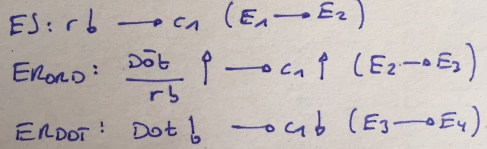 ES: rb → c1 (E1 → E2)
ERORD: DŌt/rb ↑ → c1 ↑ (E2 → E3)
ERDOT: Dot b → c1 b (E3 → E4)